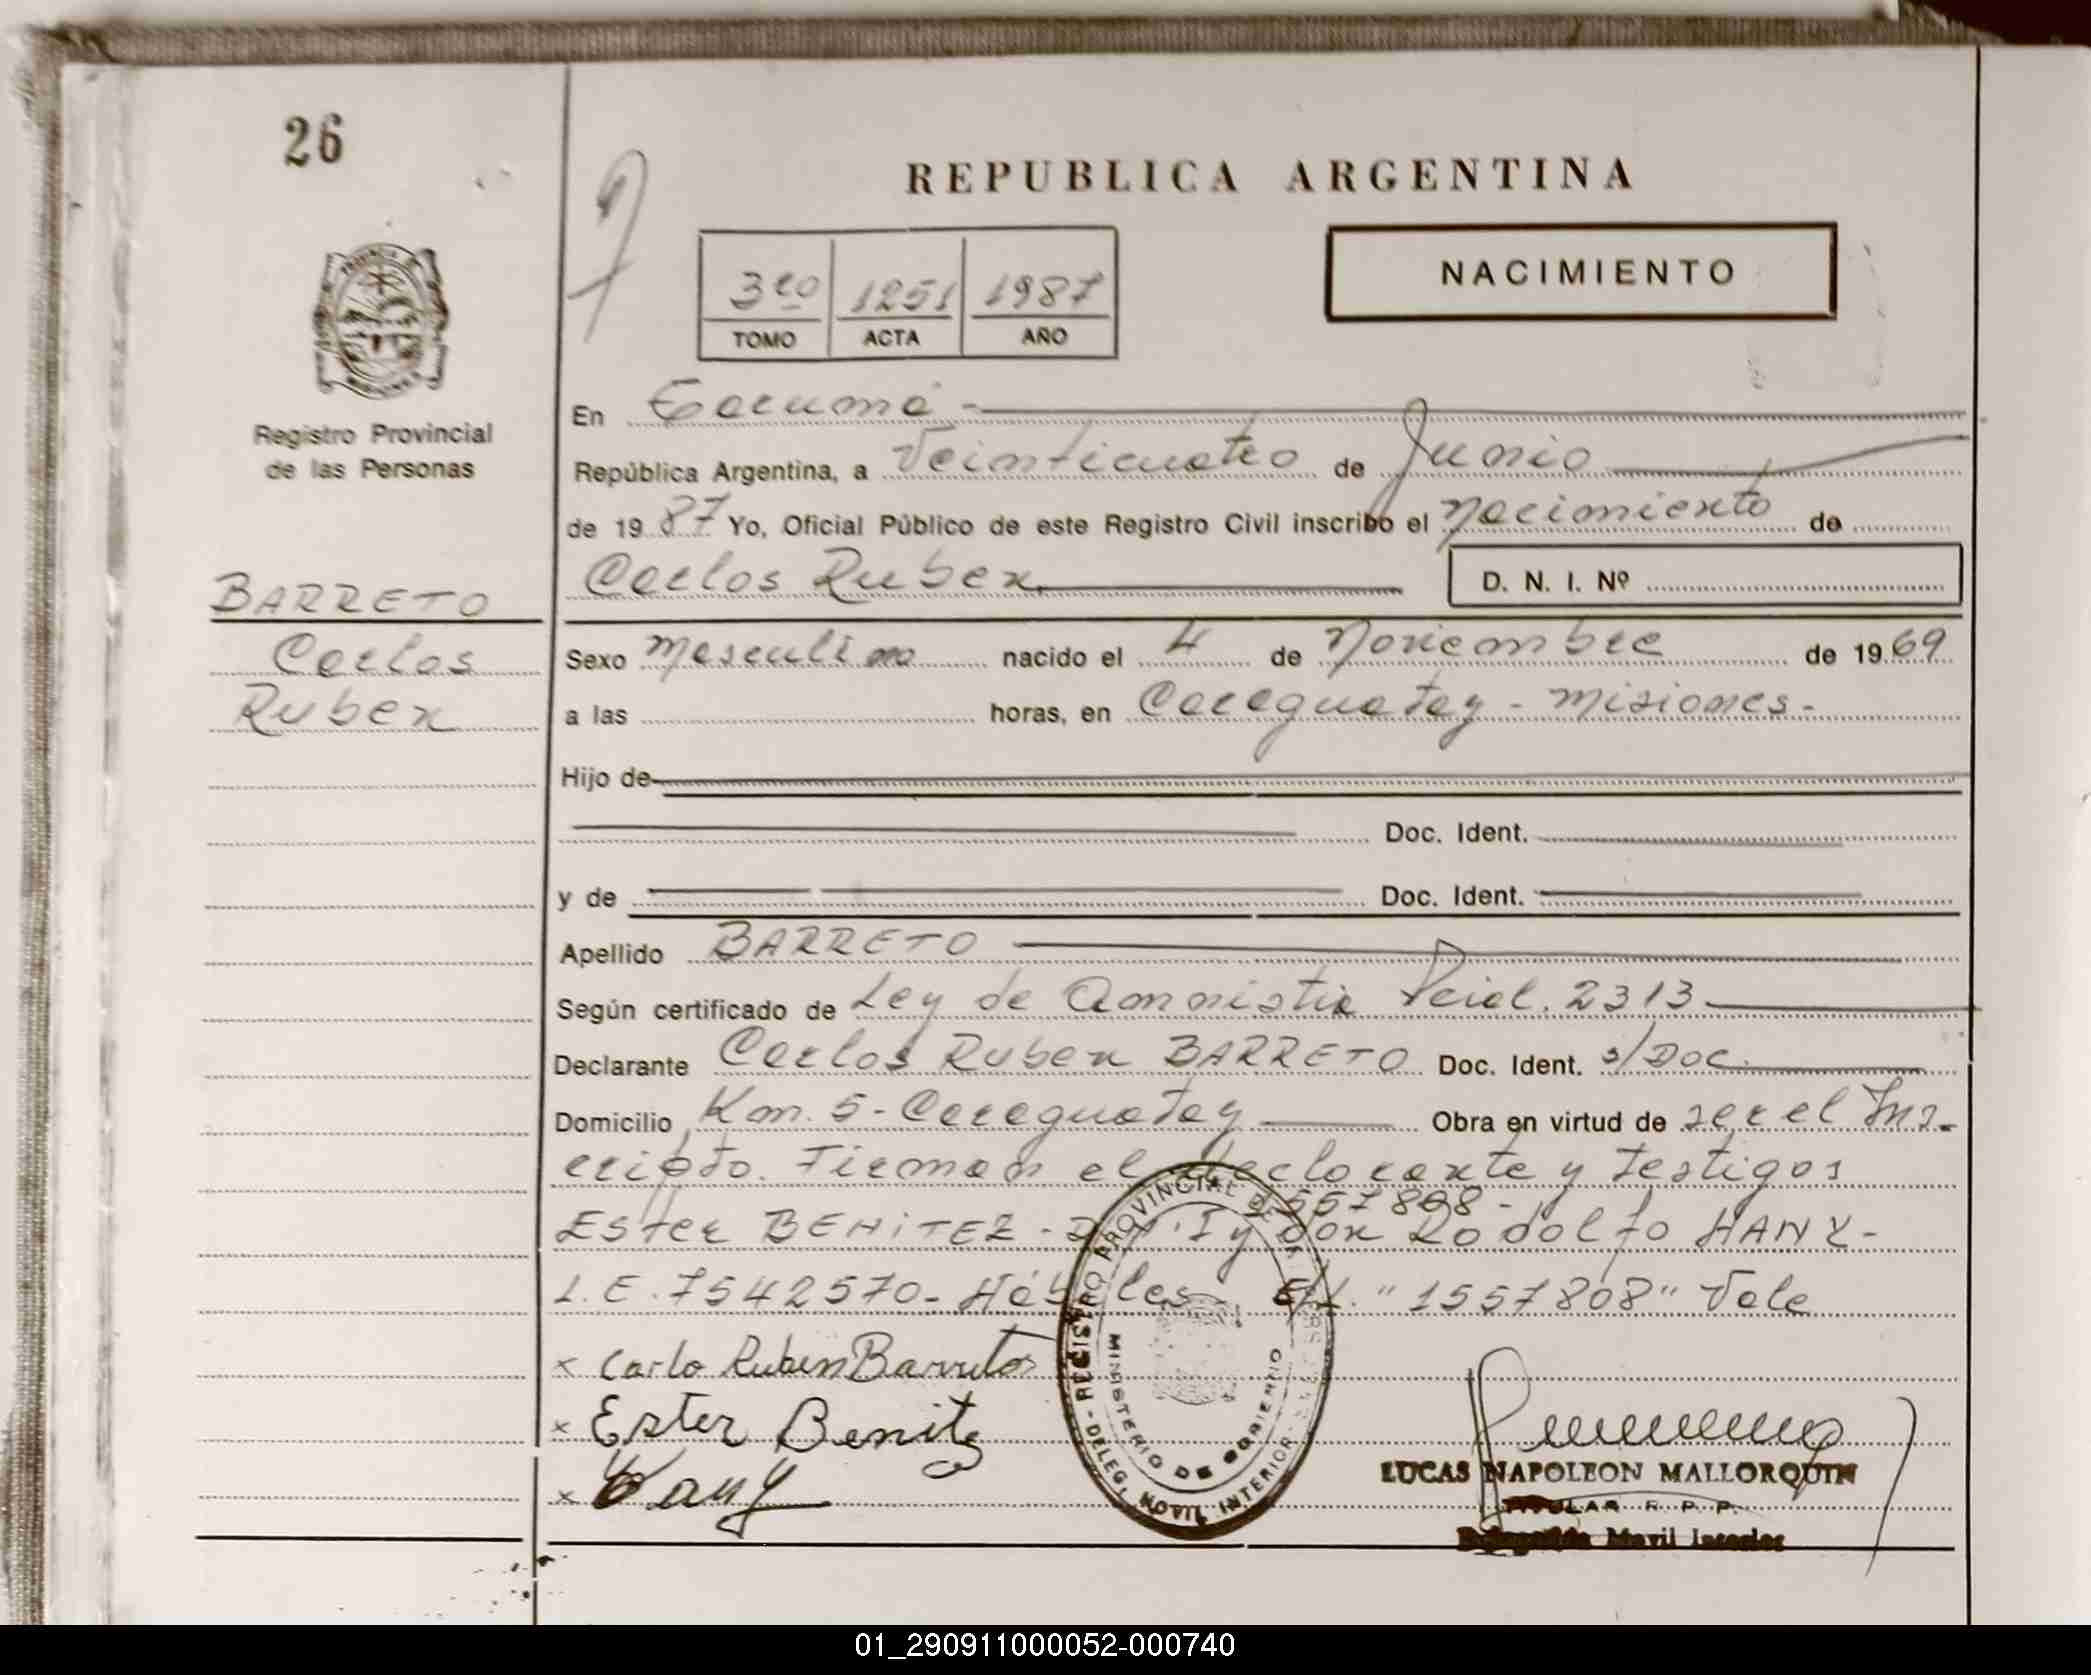 26
REPUBLICA ARGENTINA
3ro 1251 1987
TOMO ACTA AÑO
NACIMIENTO
Registro Provincial
de las Personas
BARRETO
Carlos
Ruben
En Garuma -
República Argentina, a Veinticuatro de Junio
de 19 87 Yo, Oficial Público de este Registro Civil inscribo el Nacimiento de
Carlos Ruben D. N. I. Nº
Sexo Masculino nacido el 4 de Noviembre de 19 69
a las horas, en Caraguatay - Misiones -
Hijo de
Doc. Ident.
y de Doc. Ident.
Apellido BARRETO
Según certificado de Ley de Amnistia Pcial. 2313
Declarante Carlos Ruben BARRETO Doc. Ident. s/Doc.
Domicilio Km. 5 - Caraguatay Obra en virtud de ser el Ins-
cripto. Firman el declarante y testigos
1557808 -
Ester BENITEZ - D.N.I y don Rodolfo HANY -
L.E. 7542570 - Hábiles - E/L. "1557808" Vale
x Carlo Ruben Barreto
x Ester Benitez
x Hany
REGISTRO PROVINCIAL DE LAS PERSONAS
MINISTERIO DE GOBIERNO
- DELEG. MOVIL INTERIOR -
LUCAS NAPOLEON MALLORQUIN
TITULAR R. P. P.
Delegación Movil Interior
01_290911000052-000740